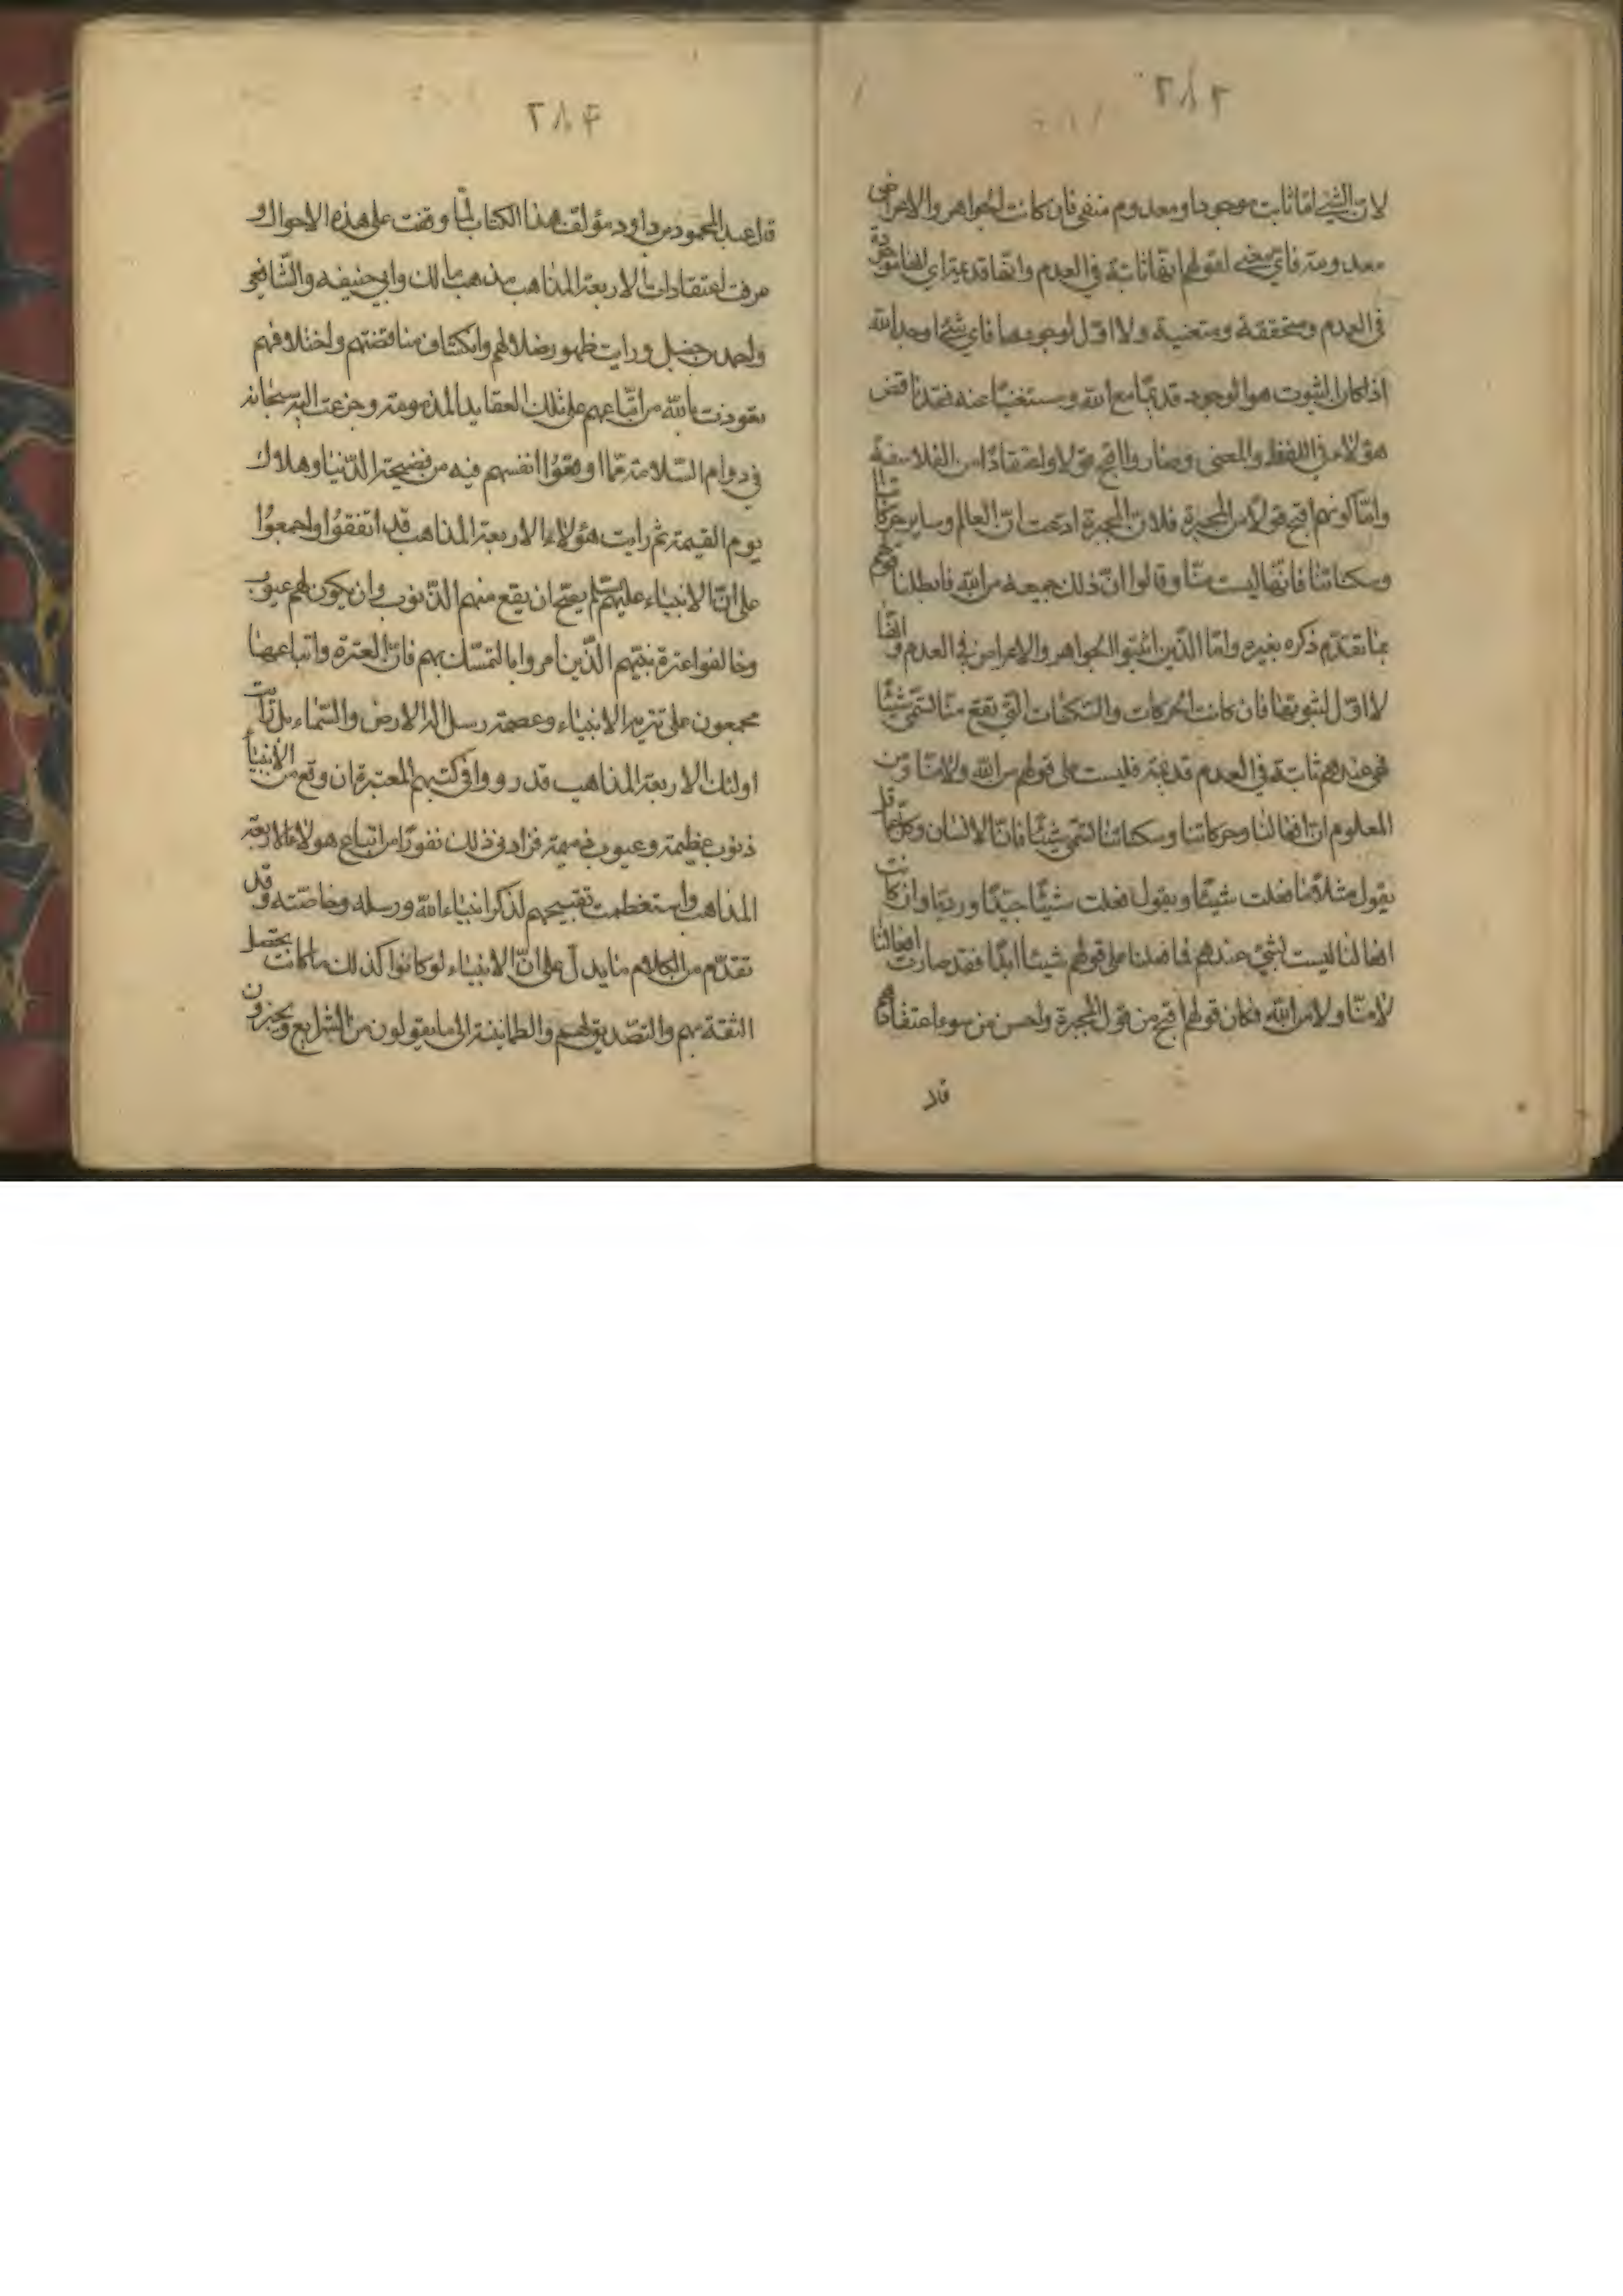 ٢٨٣
لان الشئ اما ثابت موجود او معدوم منفى فان كانت الجواهر والاعراض
معدومة فاى معنى لقولهم انها ثابتة فى العدم وانها قديمة اى انها موجودة
فى العدم ومتحققة ومتعينة ولا اول لوجودها فاى شئ اوجد الله
اذا كان الثبوت هو الوجود قديما مع الله ومستغنيا عنه فقد ناقض
هؤلاء فى اللفظ والمعنى وصاروا اقبح قولا واعتقادا من الفلاسفة
واما كونهم اقبح قولا من المجبرة فلان المجبرة ادعت ان العالم وساير حركاتنا
وسكناتنا فانها ليست منا وقالوا ان ذلك جميعه من الله فابطلنا قولهم
بما تقدم ذكره بغيره واما الذين اثبتوا الجواهر والاعراض فى العدم وانها
لا اول لثبوتها فان كانت الحركات والسكنات التى تقع منا تسمى شيئًا
فهى عندهم ثابتة فى العدم قديمة فليست على قولهم من الله ولا منا ومن
المعلوم ان افعالنا وحركاتنا وسكناتنا تسمى شيئًا فان الانسان وكل عاقل
يقول مثلا قد فعلت شيئًا ويقول فعلت شيئًا جيدًا ورديا وان كانت
افعالنا ليست بشئ عندهم فما فعلنا على قولهم شيئا ابدًا فقد صارت افعالنا
لا منا ولا من الله فكان قولهم اقبح من قول المجبرة واحسن من سوء اعتقادهم
قال
٢٨۴
قال عبد المحمود بن داود مؤلف هذا الكتاب لما وقفت على هذه الاحوال و
عرفت اعتقادات الاربعة المذاهب مذهب مالك وابى حنيفه والشافعى
واحمد حنبل ورايت ظهور ضلالهم وانكشاف مناقضتهم واختلافهم
تعوذت بالله من اتباعهم على تلك العقايد المذمومة وجزعت اليه سبحانه
فى دوام السلامة مما اوقعوا انفسهم فيه من فضيحة الدنيا وهلاك
يوم القيمة ثم رايت هؤلاء الاربعة المذاهب قد اتفقوا واجمعوا
على ان الانبياء عليهم السلم يصح ان يقع منهم الذنوب وان يكون لهم عيوب
وخالفوا عترة نبيهم الذين امروا بالتمسك بهم فان العترة واتباعها
مجمعون على تنزيه الانبياء وعصمة رسل اله الارض والسماء بل رايت
اولئك الاربعة المذاهب قد رووا فى كتبهم المعتبرة ان وقع من الأنبيآ
ذنوب عظيمة وعيوب ذميمة فزادنى ذلك نفورًا من اتباع هولاء الاربعة
المذاهب واستعظمت تقبيحهم لذكر انبياء الله ورسله وخاصته وقد
تقدم من الكلام ما يدل على ان الانبياء لو كانوا كذلك ما كانت يحصل
الثقة بهم والتصديق لهم والطمانينة الى ما يقولون من الشرايع ويخبرون